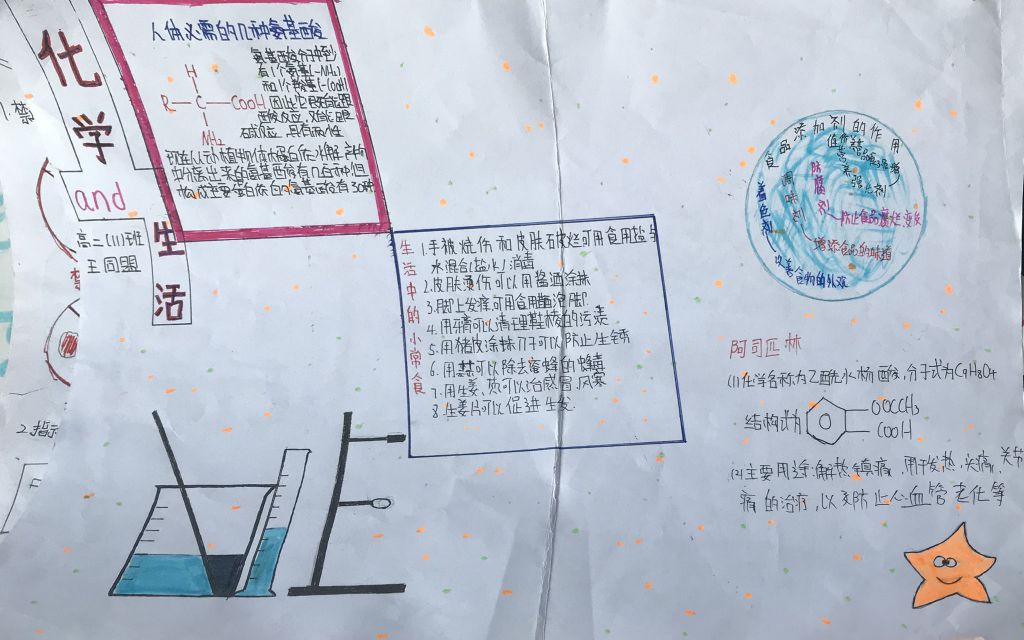 化学
and
生活
高二(11)班
王同盟
人体必需的几种氨基酸
氨基酸分子中到
有1个氨基(-NH₂)
和1个羧基(-COOH)
因此它既能跟
酸反应,又能跟
碱反应,具有两性
H
R—C—COOH
NH₂
现在从动植物体内蛋白质水解
分离出来的氨基酸有几百种但
构成主要蛋白质的氨基酸有
生活中的小常食
1.手被烧伤和皮肤 烂可用食用盐与
水混合(盐水)消毒
2.皮肤烫伤可以用酱洒涂抹
3.脚上发痒可用食用醋泡脚
4.用牙膏可以清理鞋 的污渍
5.用猪皮涂抹刀子可以防止生锈
6.用 可以除去蜜蜂的蜂毒
7.用生姜、 可以治感冒、风寒
8.生姜片可以促进生发
食品添加剂的作用
着色剂
改善食物的外观
调味剂
增添食品的味道
防腐剂
防止食品腐烂、变质
营养强化剂
阿司匹林
(1)化学名称为乙酰水杨酸,分子式为C₉H₈O₄
结构式为
OOCCH₃
COOH
(2)主要用途:解热镇痛,用于发热,头痛,关节
痛的治疗,以及防止心血管老化等
1.禁
禁
2.指示